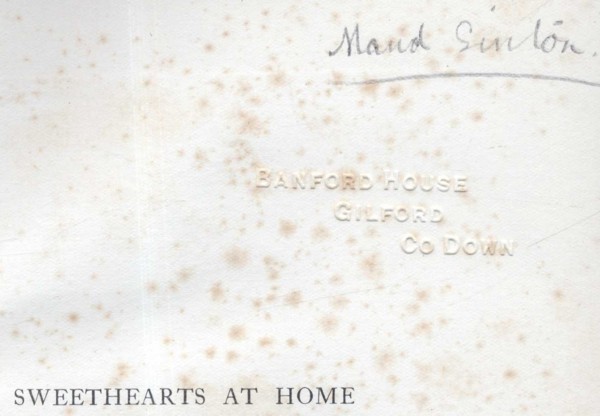 Maud Sinton.
BANFORD HOUSE
GILFORD
CO DOWN
SWEETHEARTS AT HOME